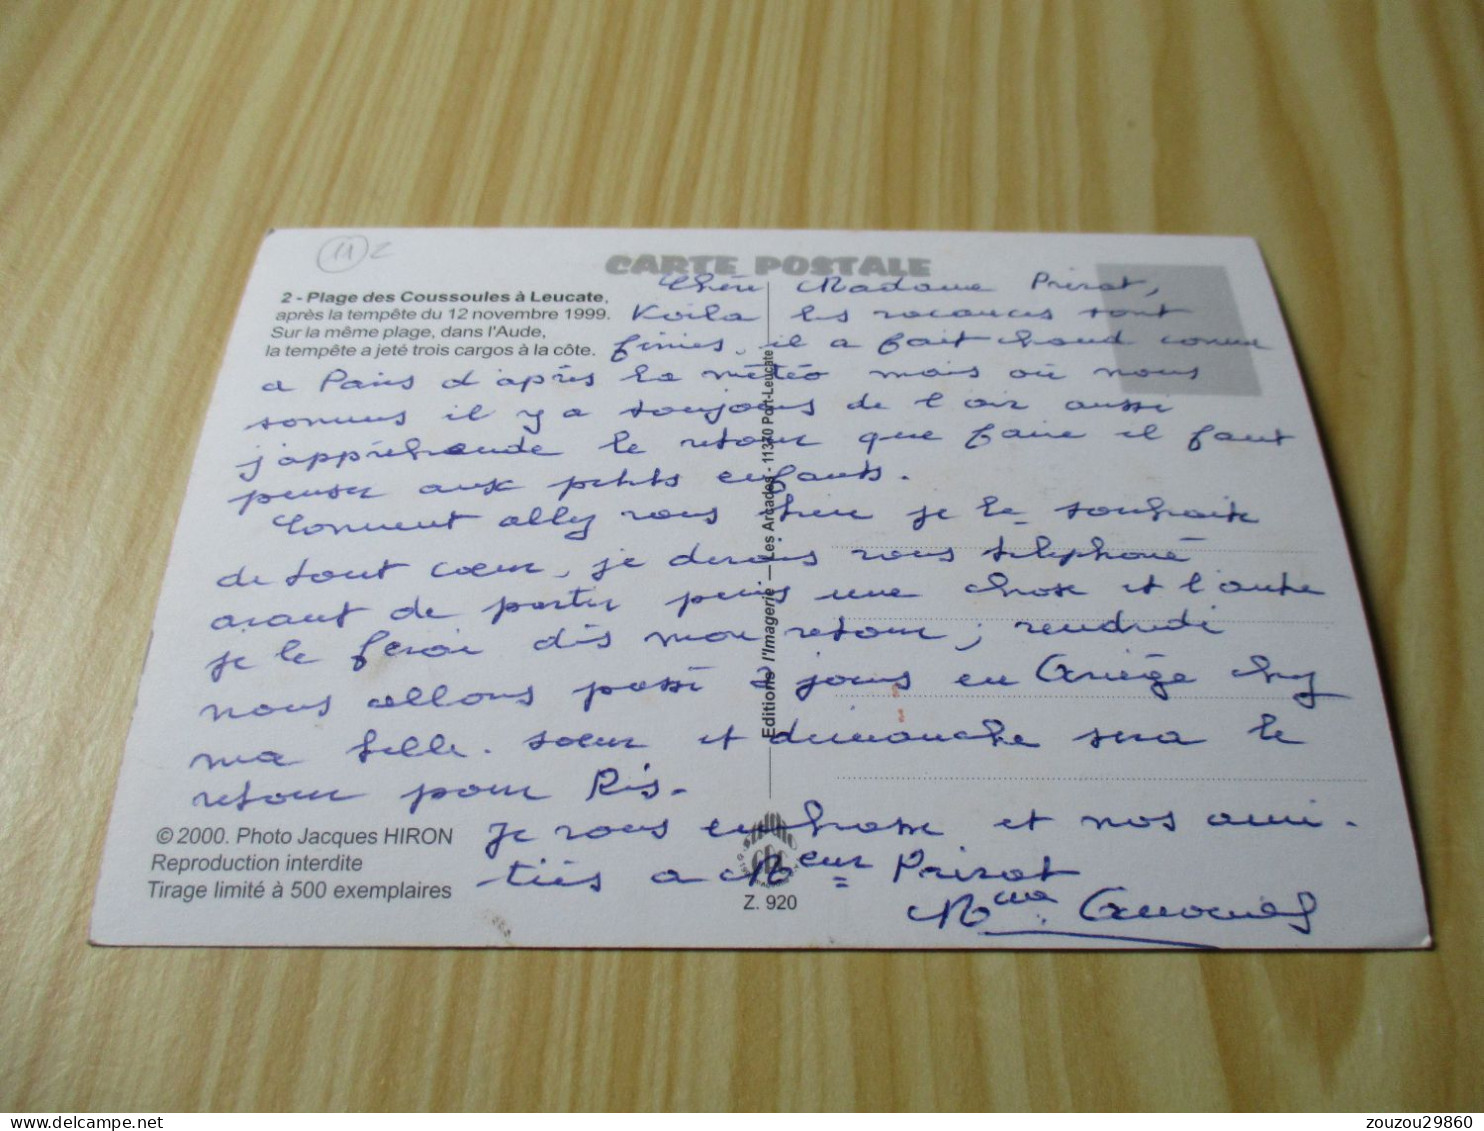 11 2
CARTE POSTALE
2 - Plage des Coussoules à Leucate,
après la tempête du 12 novembre 1999.
Sur la même plage, dans l'Aude,
la tempête a jeté trois cargos à la côte.
Chère Madame Prisot,
Voila les vacances sont
finies, il a fait chaud comme
a Paris d'après la météo mais où nous
sommes il y a toujours de l'air aussi
j'appréhende le retour que faire il faut
penser aux petits enfants.
Comment allez vous bien je le souhaite
de tout cœur, je devais vous téléphoné
avant de partir puis une chose et l'autre
je le ferai dès mon retour, vendredi
nous allons passé 2 jours en Ariège chez
ma belle. sœur et dimanche sera le
retour pour Ris.
Je vous embrasse et nos ami-
tiés a Meur Prisot
Mme
Editions l'Imagerie — Les Arcades - 11370 Port-Leucate
© 2000. Photo Jacques HIRON
Reproduction interdite
Tirage limité à 500 exemplaires
Z. 920
zouzou29860
delcampe.net